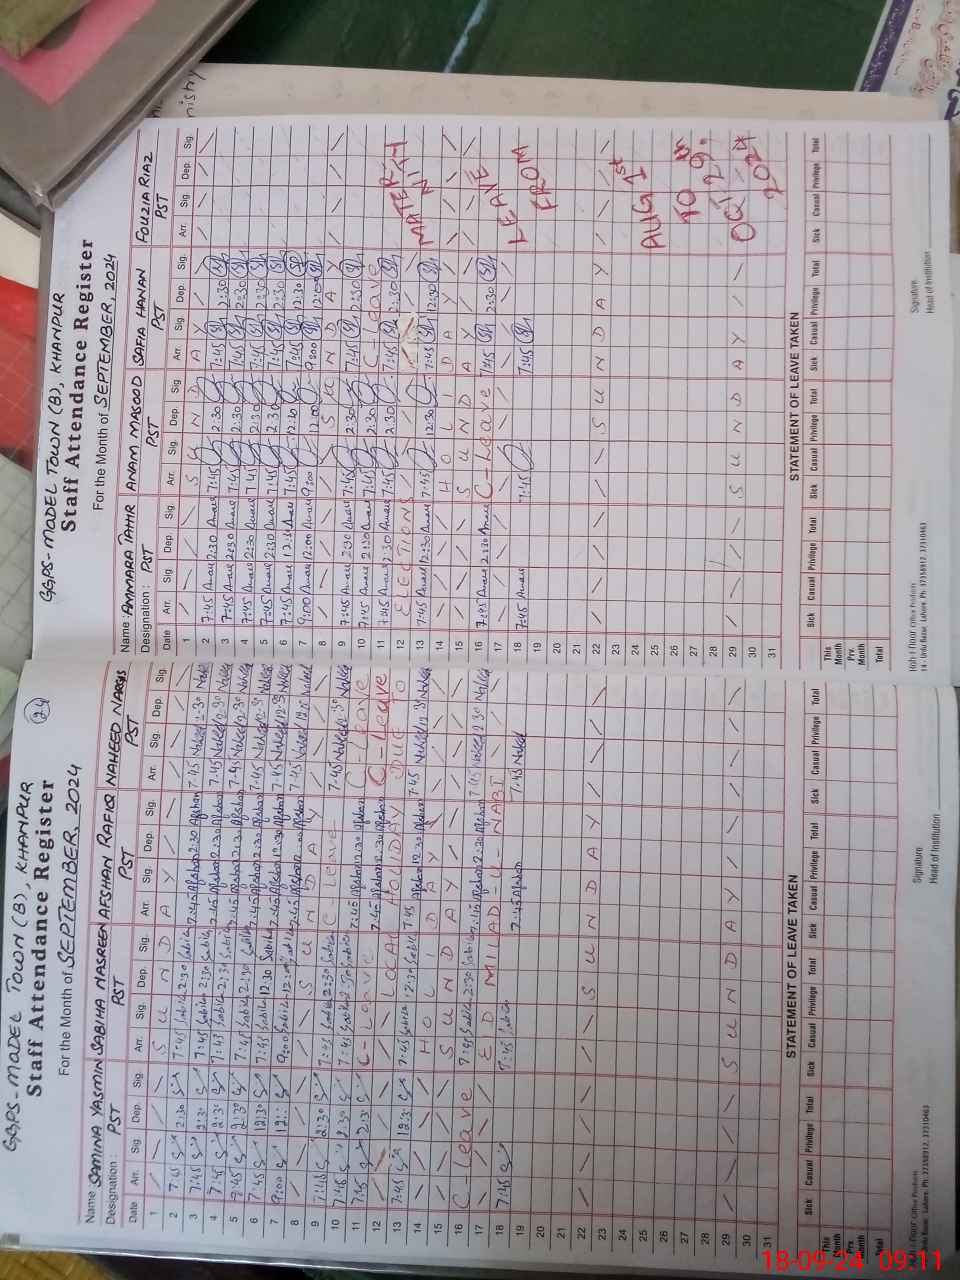 24
GGPS-MODEL TOWN (B), KHANPUR
Staff Attendance Register
For the Month of SEPTEMBER, 2024
Name: SAMINA YASMIN SABIHA NASREEN AFSHAN RAFIQ NAHEED NARGIS
Designation: PST PST PST PST
Date Arr. Sig. Dep. Sig. Arr. Sig. Dep. Sig. Arr. Sig. Dep. Sig. Arr. Sig. Dep. Sig.
1 S U N D A Y
2 7:45 2:30 7:45 Sabiha 2:30 Sabiha 7:45 Afshan 2:30 Afshan 7:45 Naheed 2:30
3 7:45 2:30 7:45 Sabiha 2:30 Sabiha 7:45 Afshan 2:30 Afshan 7:45 Naheed 2:30
4 7:45 2:30 7:45 Sabiha 2:30 Sabiha 7:45 Afshan 2:30 Afshan 7:45 Naheed 2:30
5 7:45 2:30 7:45 Sabiha 2:30 Sabiha 7:45 Afshan 2:30 Afshan 7:45 Naheed 2:30
6 7:45 12:30 7:45 Sabiha 12:30 Sabiha 7:45 Afshan 12:30 Afshan 7:45 Naheed 12:30
7 9:00 12:00 9:00 Sabiha 12:00 Sabiha Afshan Afshan 7:45 Naheed
8 S U N D A Y
9 7:45 2:30 7:45 Sabiha 2:30 Sabiha C-Leave 7:45 Naheed 2:30
10 7:45 2:30 7:45 Sabiha 2:30 Sabiha 7:45 Afshan 2:30 Afshan C-Leave
11 7:45 2:30 C-Leave 7:45 Afshan 2:30 Afshan C-Leave
12 LOCAL HOLIDAY DUE TO
13 7:45 12:30 7:45 Sabiha 12:30 Sabiha 7:45 Afshan 12:30 Afshan 7:45 Naheed 12:30
14 H O L I D A Y
15 S U N D A Y
16 C-Leave 7:45 Sabiha 2:30 Sabiha 7:45 Afshan 2:30 Afshan 7:45 Naheed 2:30
17 EID MILAD-U-NABI
18 7:45 7:45 Sabiha 7:45 Afshan 7:45 Naheed
19
20
21
22 S U N D A Y
23
24
25
26
27
28
29 S U N D A Y
30
31
STATEMENT OF LEAVE TAKEN
Sick Casual Privilege Total Sick Casual Privilege Total Sick Casual Privilege Total Sick Casual Privilege Total
This Month
Prv. Month
Total
Signature
Head of Institution
GGPS-MODEL TOWN (B), KHANPUR
Staff Attendance Register
For the Month of SEPTEMBER, 2024
Name: AMMARA TAHIR ANAM MASOOD SAFIA HANAN FOUZIA RIAZ
Designation: PST PST PST PST
Date Arr. Sig. Dep. Sig. Arr. Sig. Dep. Sig. Arr. Sig. Dep. Sig. Arr. Sig. Dep. Sig.
1 S U N D A Y
2 7:45 2:30 7:45 2:30 7:45 2:30
3 7:45 2:30 7:45 2:30 7:45 2:30
4 7:45 2:30 7:45 2:30 7:45 2:30
5 7:45 2:30 7:45 2:30 7:45 2:30
6 7:45 12:30 7:45 12:30 7:45 12:30
7 9:00 12:00 9:00 12:00 9:00 12:00
8 S U N D A Y
9 7:45 2:30 7:45 2:30 7:45 2:30
10 7:45 2:30 7:45 2:30 C-Leave
11 7:45 2:30 7:45 2:30 7:45 2:30 MATERNITY
12 ELECTIONS
13 7:45 12:30 7:45 12:30 7:45 12:30
14 H O L I D A Y
15 S U N D A Y
16 7:45 2:30 C-Leave 7:45 2:30 LEAVE
17
18 7:45 7:45 7:45 FROM
19
20
21
22 S U N D A Y
23 AUG 1st
24
25 TO
26
27 29th
28 OCT
29 S U N D A Y
30 2024
31
STATEMENT OF LEAVE TAKEN
Sick Casual Privilege Total Sick Casual Privilege Total Sick Casual Privilege Total Sick Casual Privilege Total
This Month
Prv. Month
Total
Signature
Head of Institution
18-09-24 09:11